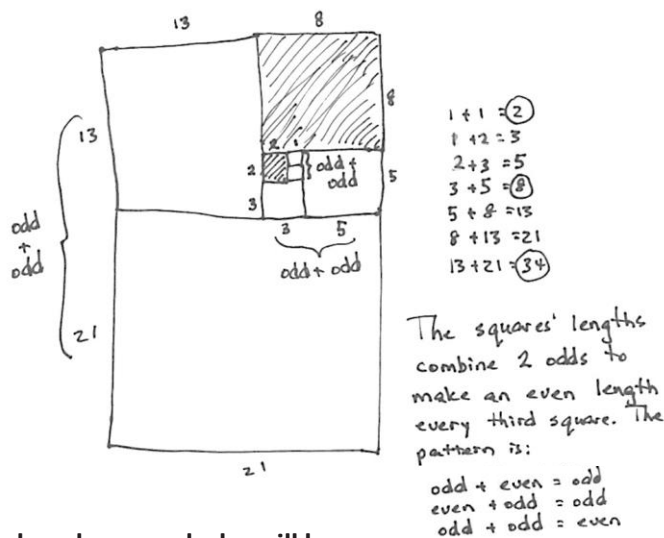 13
8
13
8
2
1
2
odd +
odd
5
3
3
5
odd + odd
odd
+
odd
21
21
1 + 1 = 2
1 + 2 = 3
2 + 3 = 5
3 + 5 = 8
5 + 8 = 13
8 + 13 = 21
13 + 21 = 34
The squares' lengths
combine 2 odds to
make an even length
every third square. The
pattern is:
odd + even = odd
even + odd = odd
odd + odd = even